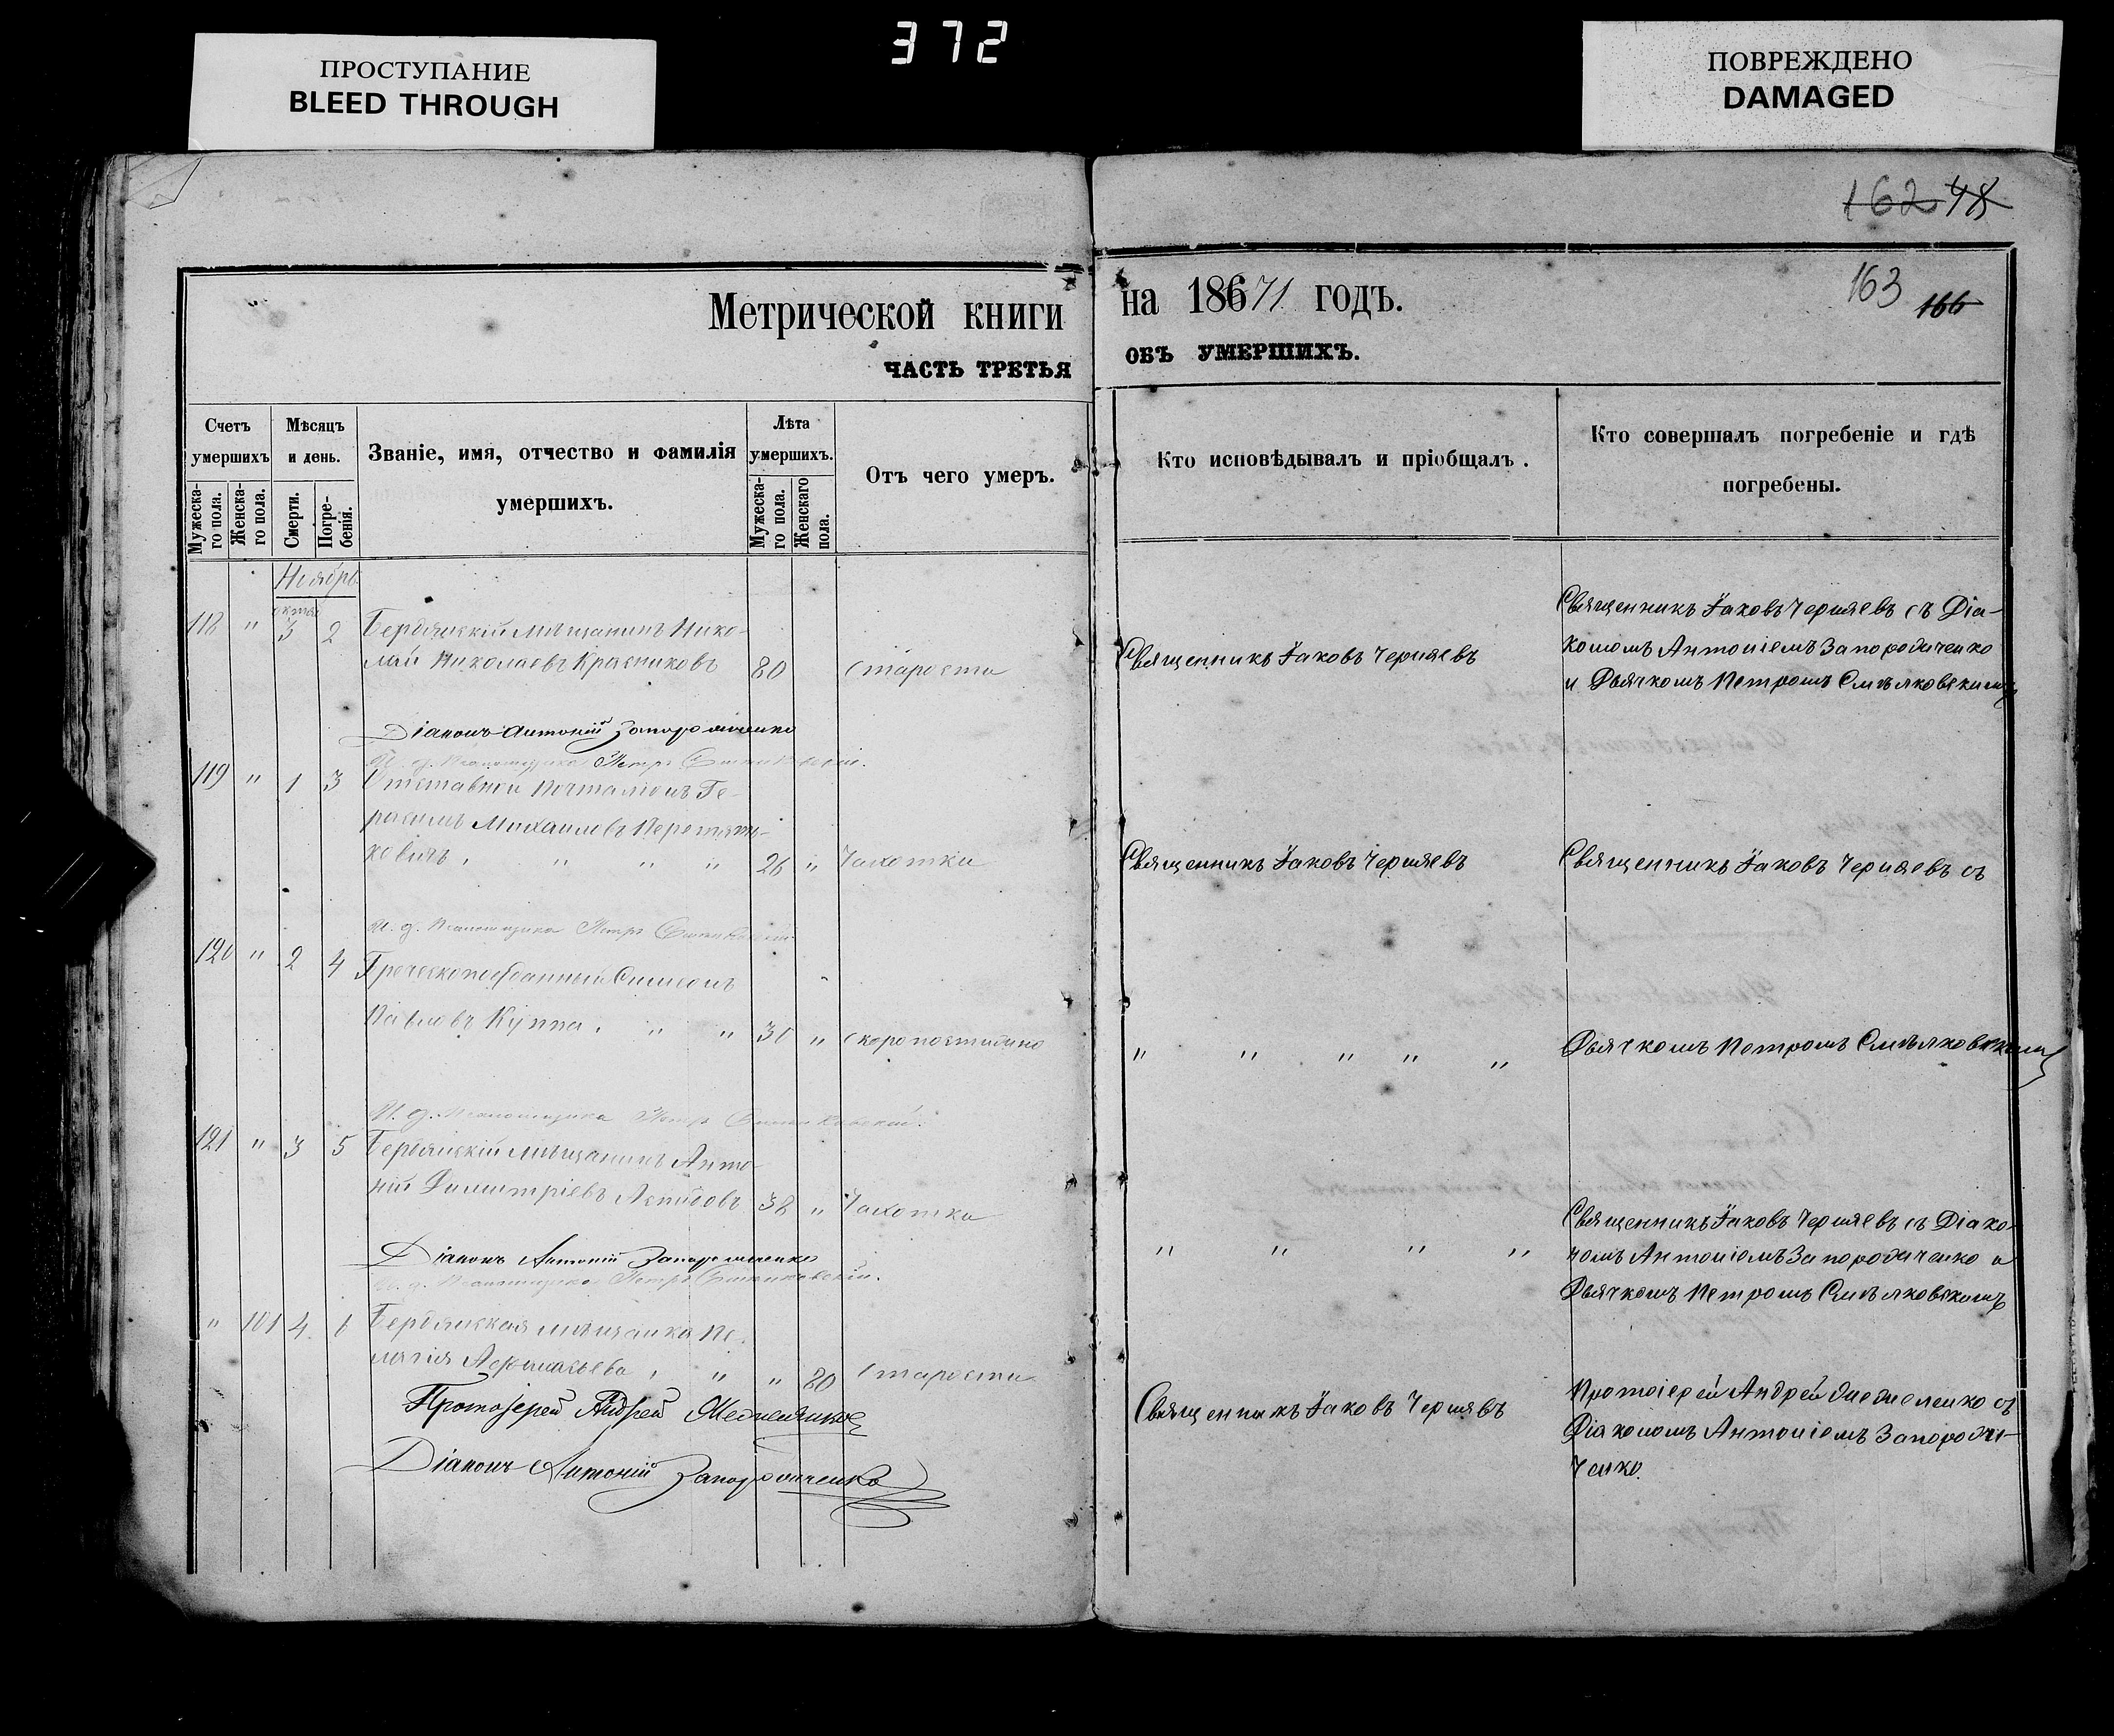 ПРОСТУПАНИЕ
BLEED THROUGH
372
ПОВРЕЖДЕНО
DAMAGED
162 48
163 166
Метрической книги на 18671 годъ.
ЧАСТЬ ТРЕТЬЯ ОБЪ УМЕРШИХЪ.
Счетъ умершихъ
Мужеска-го пола.
Женска-го пола.
Мѣсяцъ и день.
Смерти.
Погре-бенія.
Званіе, имя, отчество и фамилія
умершихъ.
Лѣта умершихъ.
Мужеска-го пола.
Женскаго пола.
Отъ чего умеръ.
Кто исповѣдывалъ и пріобщалъ.
Кто совершалъ погребеніе и гдѣ
погребены.
Ноябрь
118 " 3 2 Бердянскій мѣщанинъ Нико-
лай Николаевъ Красниковъ 80 старости
Священникъ Іаковъ Черняевъ
Священникъ Іаковъ Черняевъ съ Діа-
кономъ Антоніемъ Запорожченко
и Дьячкомъ Петромъ Смѣлковскимъ
Діаконъ Антоній Запорожченко
И. д. Псаломщика Петръ
119 " 1 3 Отставной Почталіонъ Ге-
расимъ Михаиловъ
ковичъ, " " " 26 " Чахотки
Священникъ Іаковъ Черняевъ
Священникъ Іаковъ Черняевъ съ
И. д. Псаломщика Петръ
120 " 2 4 Греческоподданный Симеонъ
Павловъ Куппа, " " 30 " скоропостижно
" " " " "
Дьячкомъ Петромъ Смѣлковскимъ
И. д. Псаломщика Петръ
121 " 3 5 Бердянскій мѣщанинъ Анто-
ній Димитріевъ 38 " Чахотки
" " " "
Священникъ Іаковъ Черняевъ съ Діако-
номъ Антоніемъ Запорожченко и
Дьячкомъ Петромъ Смѣлковскимъ
Діаконъ Антоній Запорожченко
И. д. Псаломщика Петръ
" 101 4 6 Бердянская мѣщанка Пе-
лагія , " " 80 старости
Священникъ Іаковъ Черняевъ
Протоіерей Андрей съ
Діакономъ Антоніемъ Запорож-
ченко.
Протоіерей Андрей
Діаконъ Антоній Запорожченко